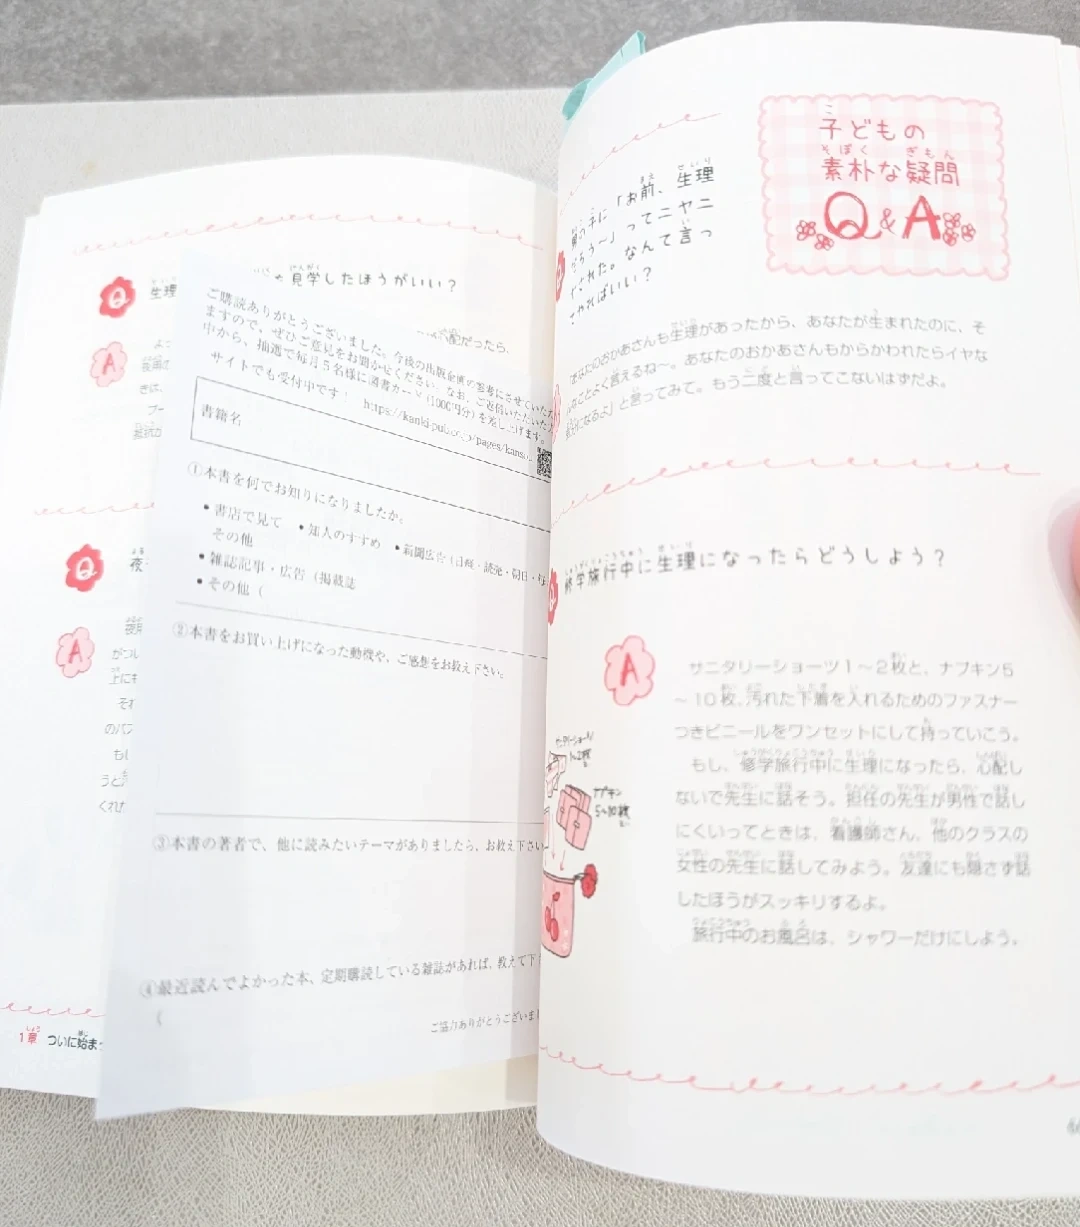 見学したほうがいい？
生理
心配だったら、
夜
1章 ついに始まっ
ご購読ありがとうございました。今後の出版企画の参考にさせていただ
ますので、ぜひご意見をお聞かせください。なお、ご返信いただいた方
中から、抽選で毎月５名様に図書カード（1000円分）を差し上げます。
サイトでも受付中です！ https://kanki-pub.co.jp/pages/kanso
書籍名
①本書を何でお知りになりましたか。
• 書店で見て • 知人のすすめ • 新聞広告（日経・読売・朝日・毎
その他
• 雑誌記事・広告（掲載誌
• その他（
②本書をお買い上げになった動機や、ご感想をお教え下さい。
③本書の著者で、他に読みたいテーマがありましたら、お教え下さい
④最近読んでよかった本、定期購読している雑誌があれば、教えて下
（
ご協力ありがとうございま
子どもの
素朴な疑問
Q&A
の子に「お前、生理
だろう〜」ってニヤニ
された。なんて言っ
やればいい？
あなたのおかあさんも生理があったから、あなたが生まれたのに、そ
なことよく言えるね〜。あなたのおかあさんもからかわれたらイヤな
気分になるよ」と言ってみて。もう二度と言ってこないはずだよ。
修学旅行中に生理になったらどうしよう？
A
サニタリーショーツ１〜２枚と、ナプキン５
〜10枚、汚れた下着を入れるためのファスナー
つきビニールをワンセットにして持っていこう。
もし、修学旅行中に生理になったら、心配し
ないで先生に話そう。担任の先生が男性で話し
にくいってときは、看護師さん、他のクラスの
女性の先生に話してみよう。友達にも隠さず話
したほうがスッキリするよ。
旅行中のお風呂は、シャワーだけにしよう。
サニタリーショーツ
1〜2枚
ナプキン
5〜10枚